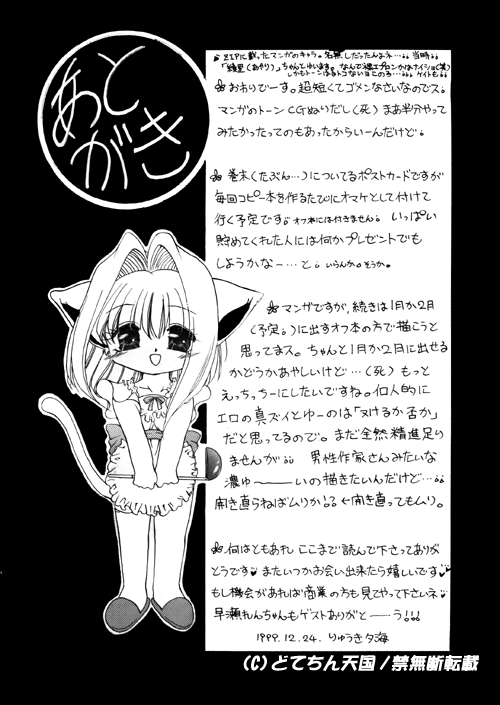 あと
がき
ZIPに載ったマンガのキャラ。名無しだったんよネ…。当時。
「綾里(あやり)」ちゃんとゆいます。なんで裸エプロンかはナイショ(笑)
しかもトーンはるトコないヨこのころ…。ゲイトも。
おわりでーす。超短くてゴメンなさいなのでス。
マンガのトーンCGぬいだし(死)まあ半分やって
みたかったってのもあったからいーんだけど。
巻末(たぶん…)についてるポストカードですが
毎回コピー本を作るたびにオマケとして付けて
行く予定です。オフ本には付きません。いっぱい
貯めてくれた人には何かプレゼントでも
しようかなー…と。いらんか。そうか。
マンガですが、続きは1月か2月
(予定。)に出すオフ本の方で描こうと
思ってまス。ちゃんと1月か2月に出せる
かどうかあやしいけど…(死)もっと
えっちっちーにしたいですね。個人的に
エロの真ズイとゆーのは「ヌけるか否か」
だと思ってるので。まだ全然精進足り
ませんが。男性作家さんみたいな
濃ゅ〜〜いの描きたいんだけど…。
開き直らねばムリか!。←開き直ってもムリ。
何はともあれ ここまで読んで下さってありが
とうです♥またいつかお会い出来たら嬉しいです♥
もし機会があれば商業の方も見てやって下さいネ
早瀬れんちゃんもゲストありがと――う!!!
1999.12.24. りゅうき夕海
(C) どてちん天国/禁無断転載